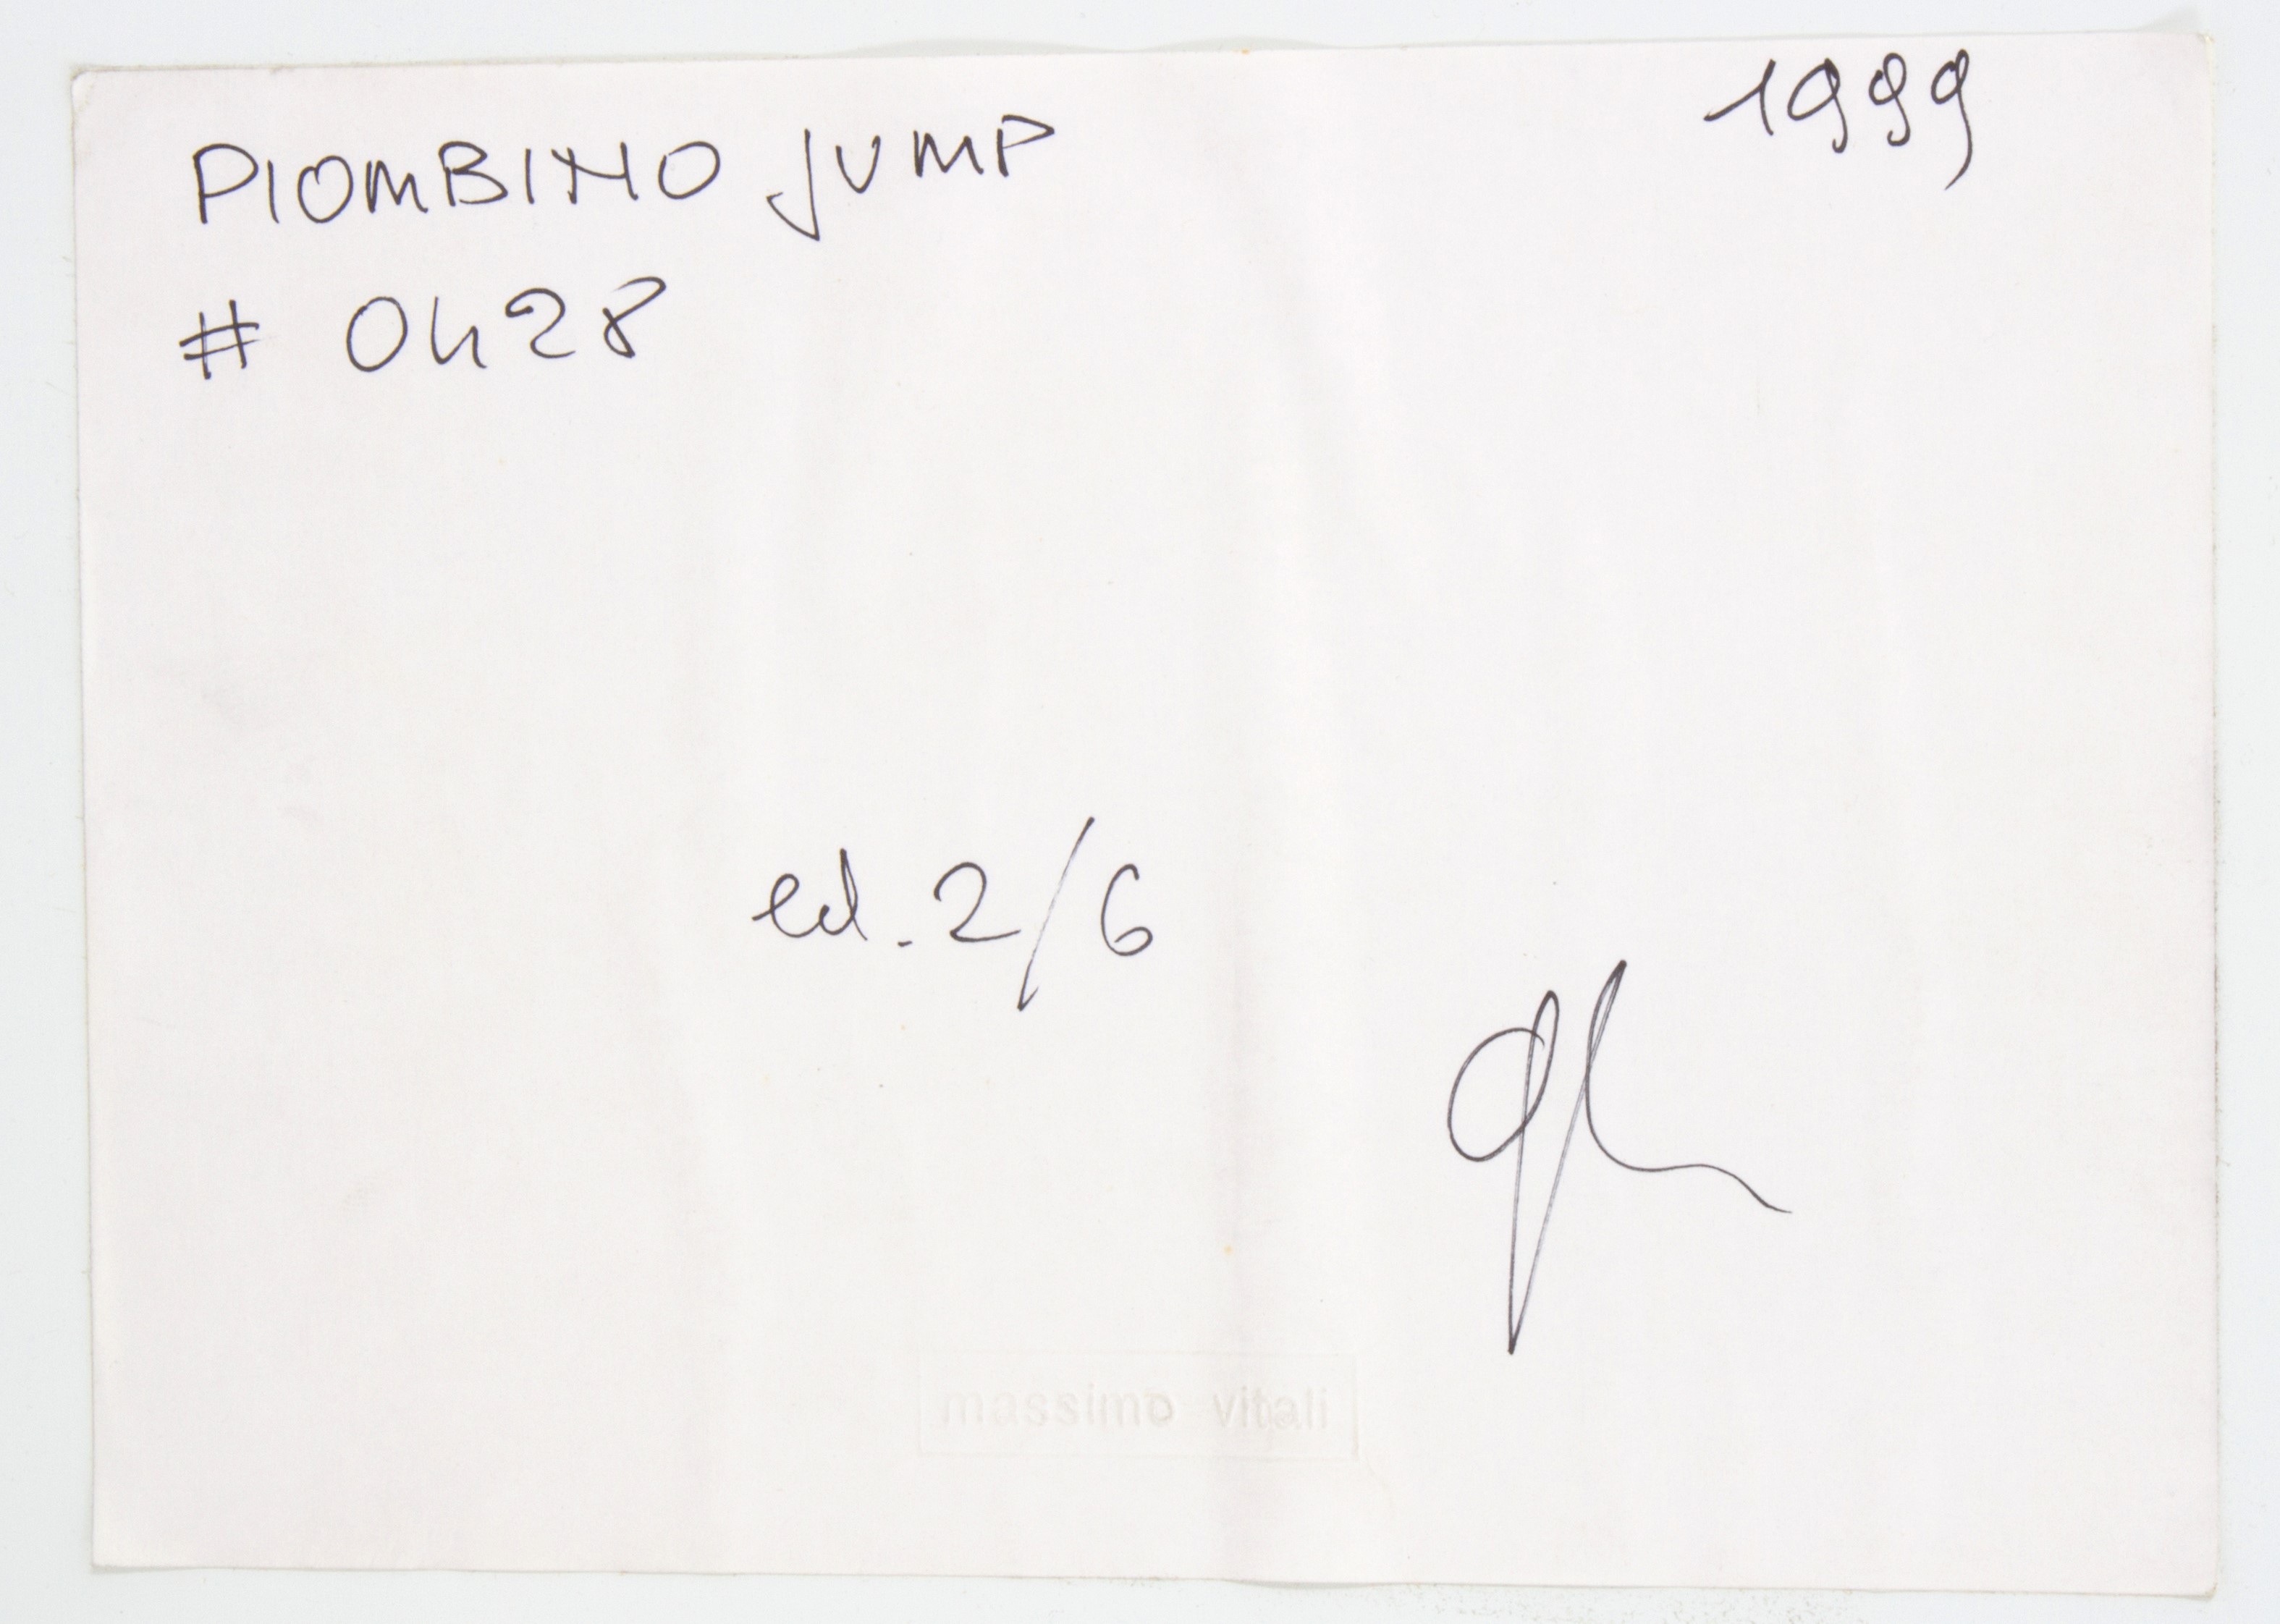 PIOMBINO JUMP
1999
# 0428
ed. 2/6
massimo vitali